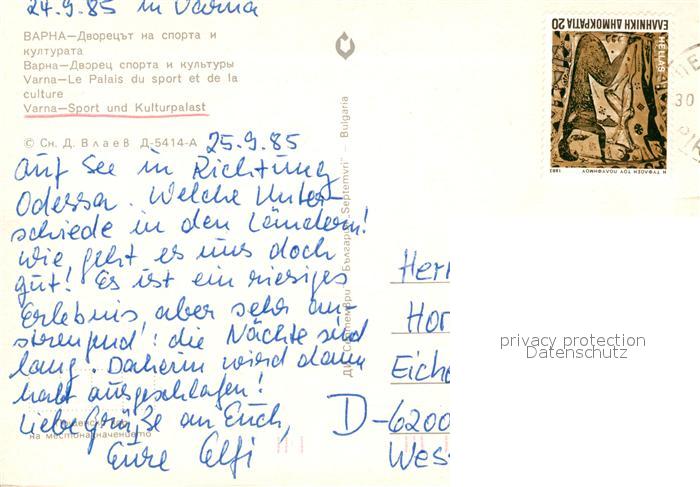 24.9.85 in Varna
ВАРНА—Дворецът на спорта и
културата
Варна—Дворец спорта и культуры
Varna—Le Palais du sport et de la
culture
Varna—Sport und Kulturpalast
© Сн. Д. Влаев Д-5414-А
25.9.85
auf See in Richtung
Odessa. Welche Unter-
schiede in den Ländern!
Wie geht es uns doch
gut! Es ist ein riesiges
Erlebnis, aber sehr an-
strengend: die Nächte sind
lang. Daheim wird dann
halt ausgeschlafen!
Liebe Grüße an Euch,
Eure Elfi
на местоназначението
"Септември" България „Septemvri" — Bulgaria
ΕΛΛΗΝΙΚΗ ΔΗΜΟΚΡΑΤΙΑ 20
HELLAS
Η ΤΥΦΛΩΣΗ ΤΟΥ ΠΟΛΥΦΗΜΟΥ
1983
30
Herr
Hor
Eiche
D-6200
Wes
privacy protection
Datenschutz